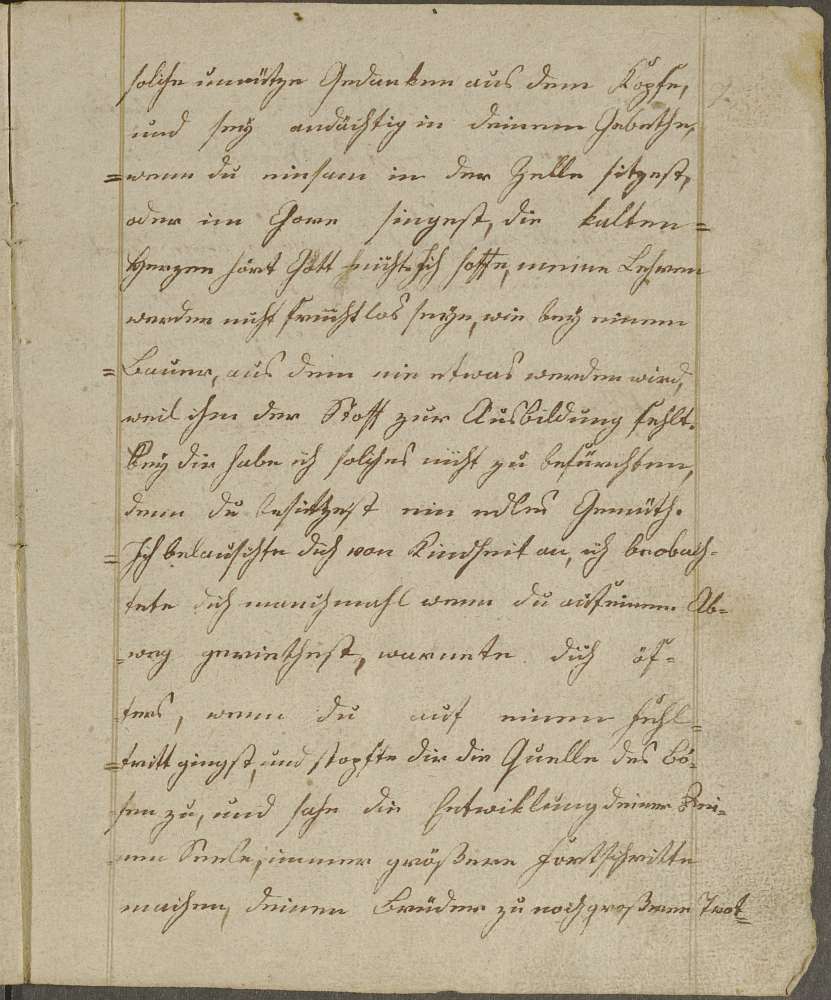 solche unnütze Gedanken aus dem Kopfe,
und sey andächtig in deinem Gebethe,
=wenn du einsam in der Zelle sitzest,
oder im Chore singest, die kalten=
Herzen hört Gott nicht. Ich hoffe, meine Lehren
werden nicht fruchtlos seyn, wie bey einem
=Bauer, aus dem nie etwas werden wird,
weil ihm der Stoff zur Ausbildung fehlt.
Bey dir habe ich solches nicht zu befürchten,
denn du besitzest ein edles Gemüth.
=Ich belauschte dich von Kindheit an, ich beobach-
tete dich manchmahl wenn du auf einem Ab-
-weg geriethest, warnete dich öf-
ters, wenn du auf einem Fehl-
=tritt gingst, und stopfte dir die Quelle des Bö-
sen zu, und sahe die Entwiklung deiner Rei-
nen Seele, immer größere Fortschritte
machen, deinen Bruder zu noch großeren